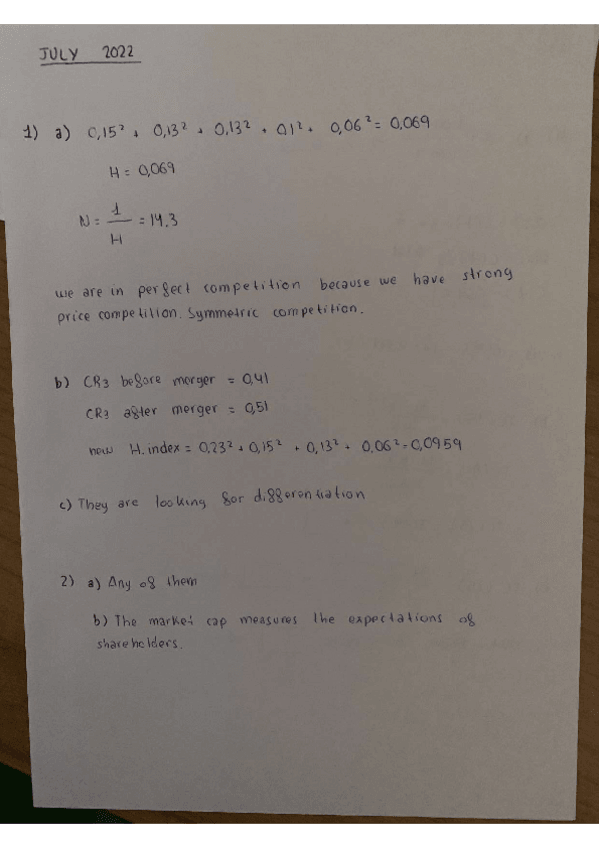 JULY 2022
1) a) 0,15² + 0,13² + 0,13² + 0,1² + 0,06² = 0,069
H = 0,069
N = 1/H = 14.3
we are in perfect competition because we have strong
price competition. Symmetric competition.
b) CR3 before merger = 0,41
CR3 after merger = 0,51
new H.index = 0,23² + 0,15² + 0,13² + 0,06² = 0,0959
c) They are looking for differentiation
2) a) Any of them
b) The market cap measures the expectations of
shareholders.